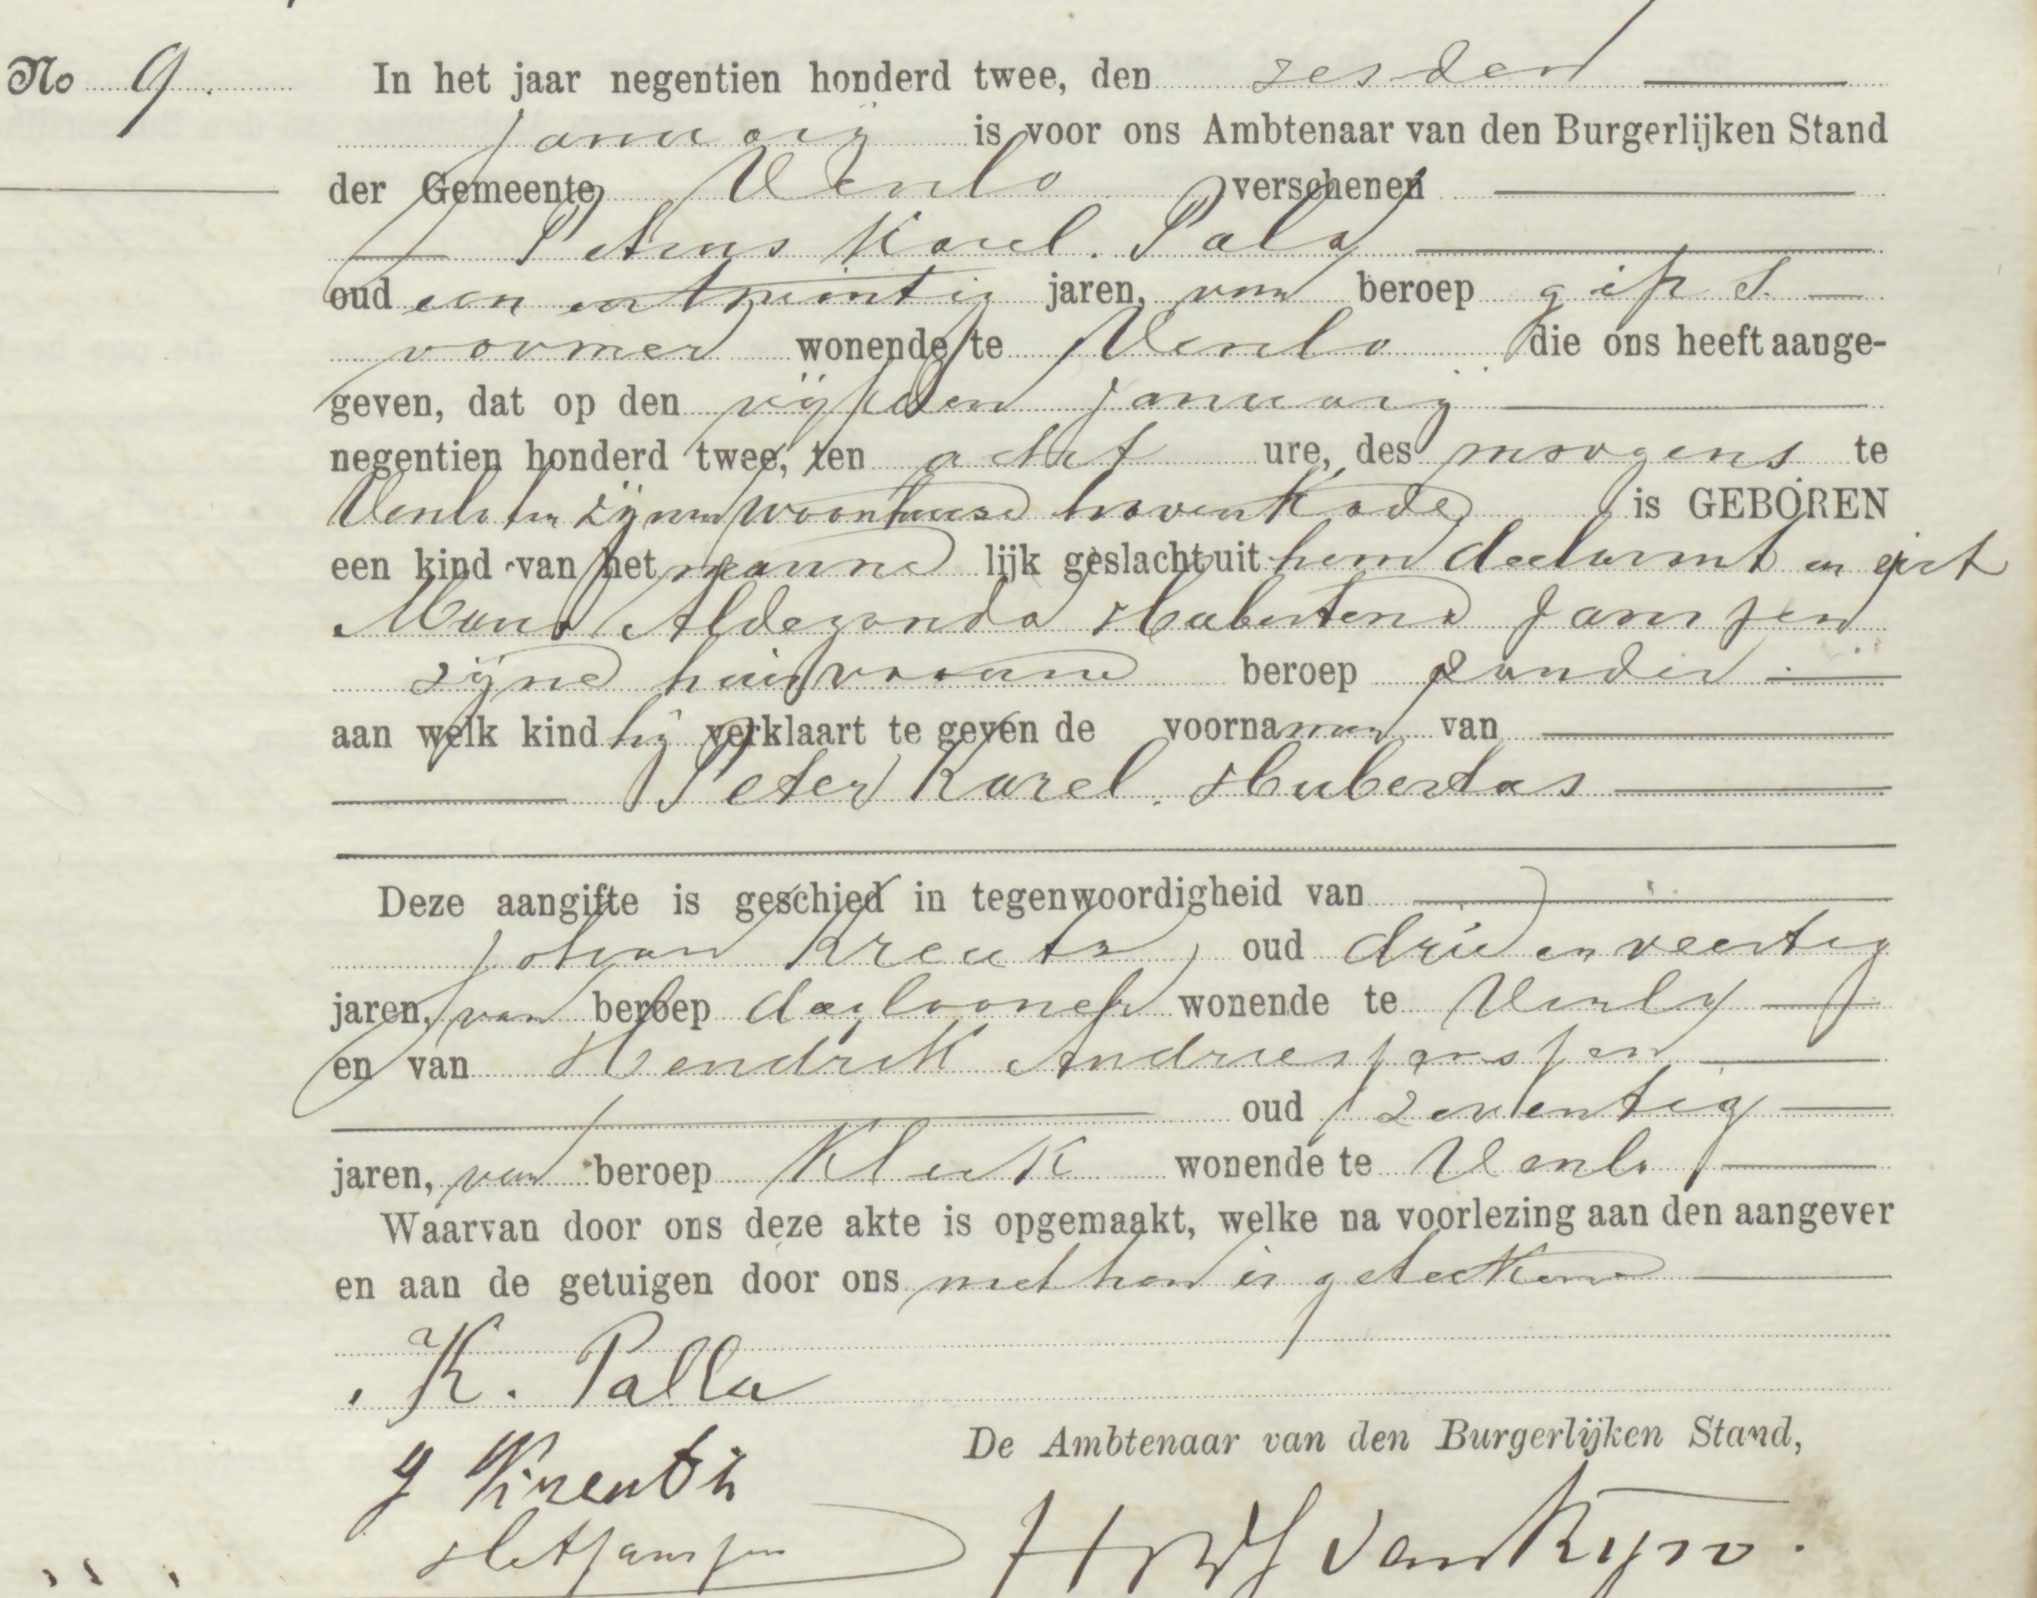 No 9.
In het jaar negentien honderd twee, den zesden
Januarij is voor ons Ambtenaar van den Burgerlijken Stand
der Gemeente Venlo verschenen
Petrus Karel Pala
oud een en twintig jaren, van beroep gips
vormer wonende te Venlo die ons heeft aange-
geven, dat op den vijfden Januarij
negentien honderd twee, ten acht ure, des morgens te
Venlo ten zijnen woonhuise havenkade is GEBOREN
een kind van het manne lijk geslacht uit hem declarant en
Maria Aldegonda Hubertena Janssen
zijne huisvrouw beroep zonder
aan welk kind hij verklaart te geven de voornamen van
Peter Karel Hubertus
Deze aangifte is geschied in tegenwoordigheid van
Johan Kreutz, oud drie en veertig
jaren, van beroep daglooner wonende te Venlo
en van Hendrik Andries Janssen
oud zeventig
jaren, van beroep klerk wonende te Venlo
Waarvan door ons deze akte is opgemaakt, welke na voorlezing aan den aangever
en aan de getuigen door ons met hen is geteekend
K. Palla
J Kreutz
HA Janssen
De Ambtenaar van den Burgerlijken Stand,
van Rijn.